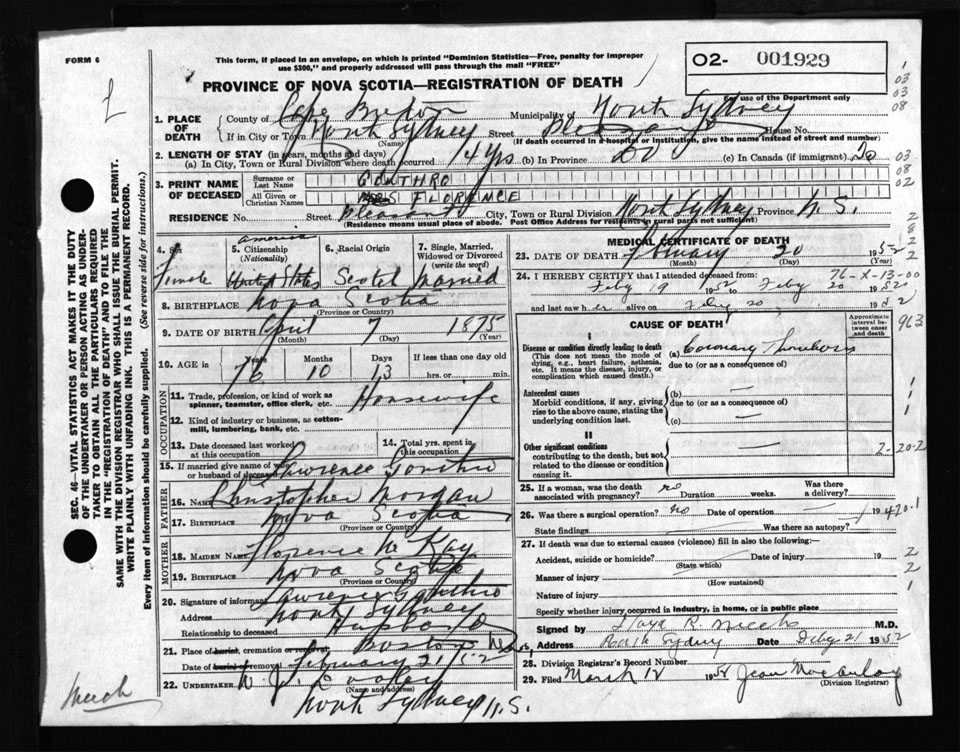 FORM 6
This form, if placed in an envelope, on which is printed "Dominion Statistics—Free, penalty for improper
use $300," and properly addressed will pass through the mail "FREE"
O2- 001929
PROVINCE OF NOVA SCOTIA—REGISTRATION OF DEATH
use of the Department only
1. PLACE OF DEATH
County of Cape Breton Municipality of North Sydney
If in City or Town North Sydney Street House No.
(Name) (If death occurred in a hospital or institution, give the name instead of street and number)
2. LENGTH OF STAY (in years, months and days)
(a) In City, Town or Rural Division where death occurred 14 yrs (b) In Province Do (c) In Canada (if immigrant) Do
3. PRINT NAME OF DECEASED
Surname or Last Name GOUTHRO
All Given or Christian Names FLORENCE
RESIDENCE No. Street City, Town or Rural Division North Sydney Province N.S.
(Residence means usual place of abode. Post Office Address for residents in rural parts not sufficient)
4. Sex Female
5. Citizenship (Nationality) America United States
6. Racial Origin Scotch
7. Single, Married, Widowed or Divorced (write the word) Married
8. BIRTHPLACE Nova Scotia
(Province or Country)
9. DATE OF BIRTH April 7 1875
(Month) (Day) (Year)
10. AGE in Years 76 Months 10 Days 13 If less than one day old
hrs. or min.
OCCUPATION
11. Trade, profession, or kind of work as
spinner, teamster, office clerk, etc. Housewife
12. Kind of industry or business, as cotton-
mill, lumbering, bank, etc.
13. Date deceased last worked at this occupation
14. Total yrs. spent in this occupation
15. If married give name of wife
or husband of deceased Lawrence Gouthro
FATHER
16. Name Christopher Morgan
17. BIRTHPLACE Nova Scotia
(Province or Country)
MOTHER
18. MAIDEN NAME Florence McKay
19. BIRTHPLACE Nova Scotia
(Province or Country)
20. Signature of informant Lawrence Gouthro
Address North Sydney
Relationship to deceased Husband
21. Place of burial, cremation or removal Boston
Date of burial or removal February 21/52
22. UNDERTAKER W. J. Dooley
(Name and address)
North Sydney N.S.
MEDICAL CERTIFICATE OF DEATH
23. DATE OF DEATH February 20 1952
(Month) (Day) (Year)
76-X-13-00
24. I HEREBY CERTIFY that I attended deceased from:
Feby 19 1952 to Feby 20 1952
and last saw her alive on Feby 20 1952
CAUSE OF DEATH
Approximate interval between onset and death
963
I
Disease or condition directly leading to death
(This does not mean the mode of
dying, e.g., heart failure, asthenia,
etc. It means the disease, injury, or
complication which caused death.)
(a) Coronary Thrombosis
due to (or as a consequence of)
Antecedent causes
Morbid conditions, if any, giving
rise to the above cause, stating the
underlying condition last.
(b)
due to (or as a consequence of)
(c)
II
Other significant conditions
contributing to the death, but not
related to the disease or condition
causing it.
2-20-2
25. If a woman, was the death
associated with pregnancy? no Duration weeks. Was there
a delivery?
26. Was there a surgical operation? no Date of operation 19
420.1
State findings Was there an autopsy?
27. If death was due to external causes (violence) fill in also the following:—
Accident, suicide or homicide? Date of injury 19
(State which)
Manner of injury
(How sustained)
Nature of injury
Specify whether injury occurred in industry, in home, or in public place
Signed by M.D.
Address North Sydney Date Feby 21 1952
28. Division Registrar's Record Number
29. Filed March 12 1952
(Division Registrar)
SEC. 46—VITAL STATISTICS ACT MAKES IT THE DUTY
OF THE UNDERTAKER OR PERSON ACTING AS UNDER-
TAKER TO OBTAIN ALL THE PARTICULARS REQUIRED
IN THE "REGISTRATION OF DEATH" AND TO FILE THE
SAME WITH THE DIVISION REGISTRAR WHO SHALL ISSUE THE BURIAL PERMIT.
WRITE PLAINLY WITH UNFADING INK. THIS IS A PERMANENT RECORD.
Every item of information should be carefully supplied. (See reverse side for instructions.)
03
03
08
03
08
02